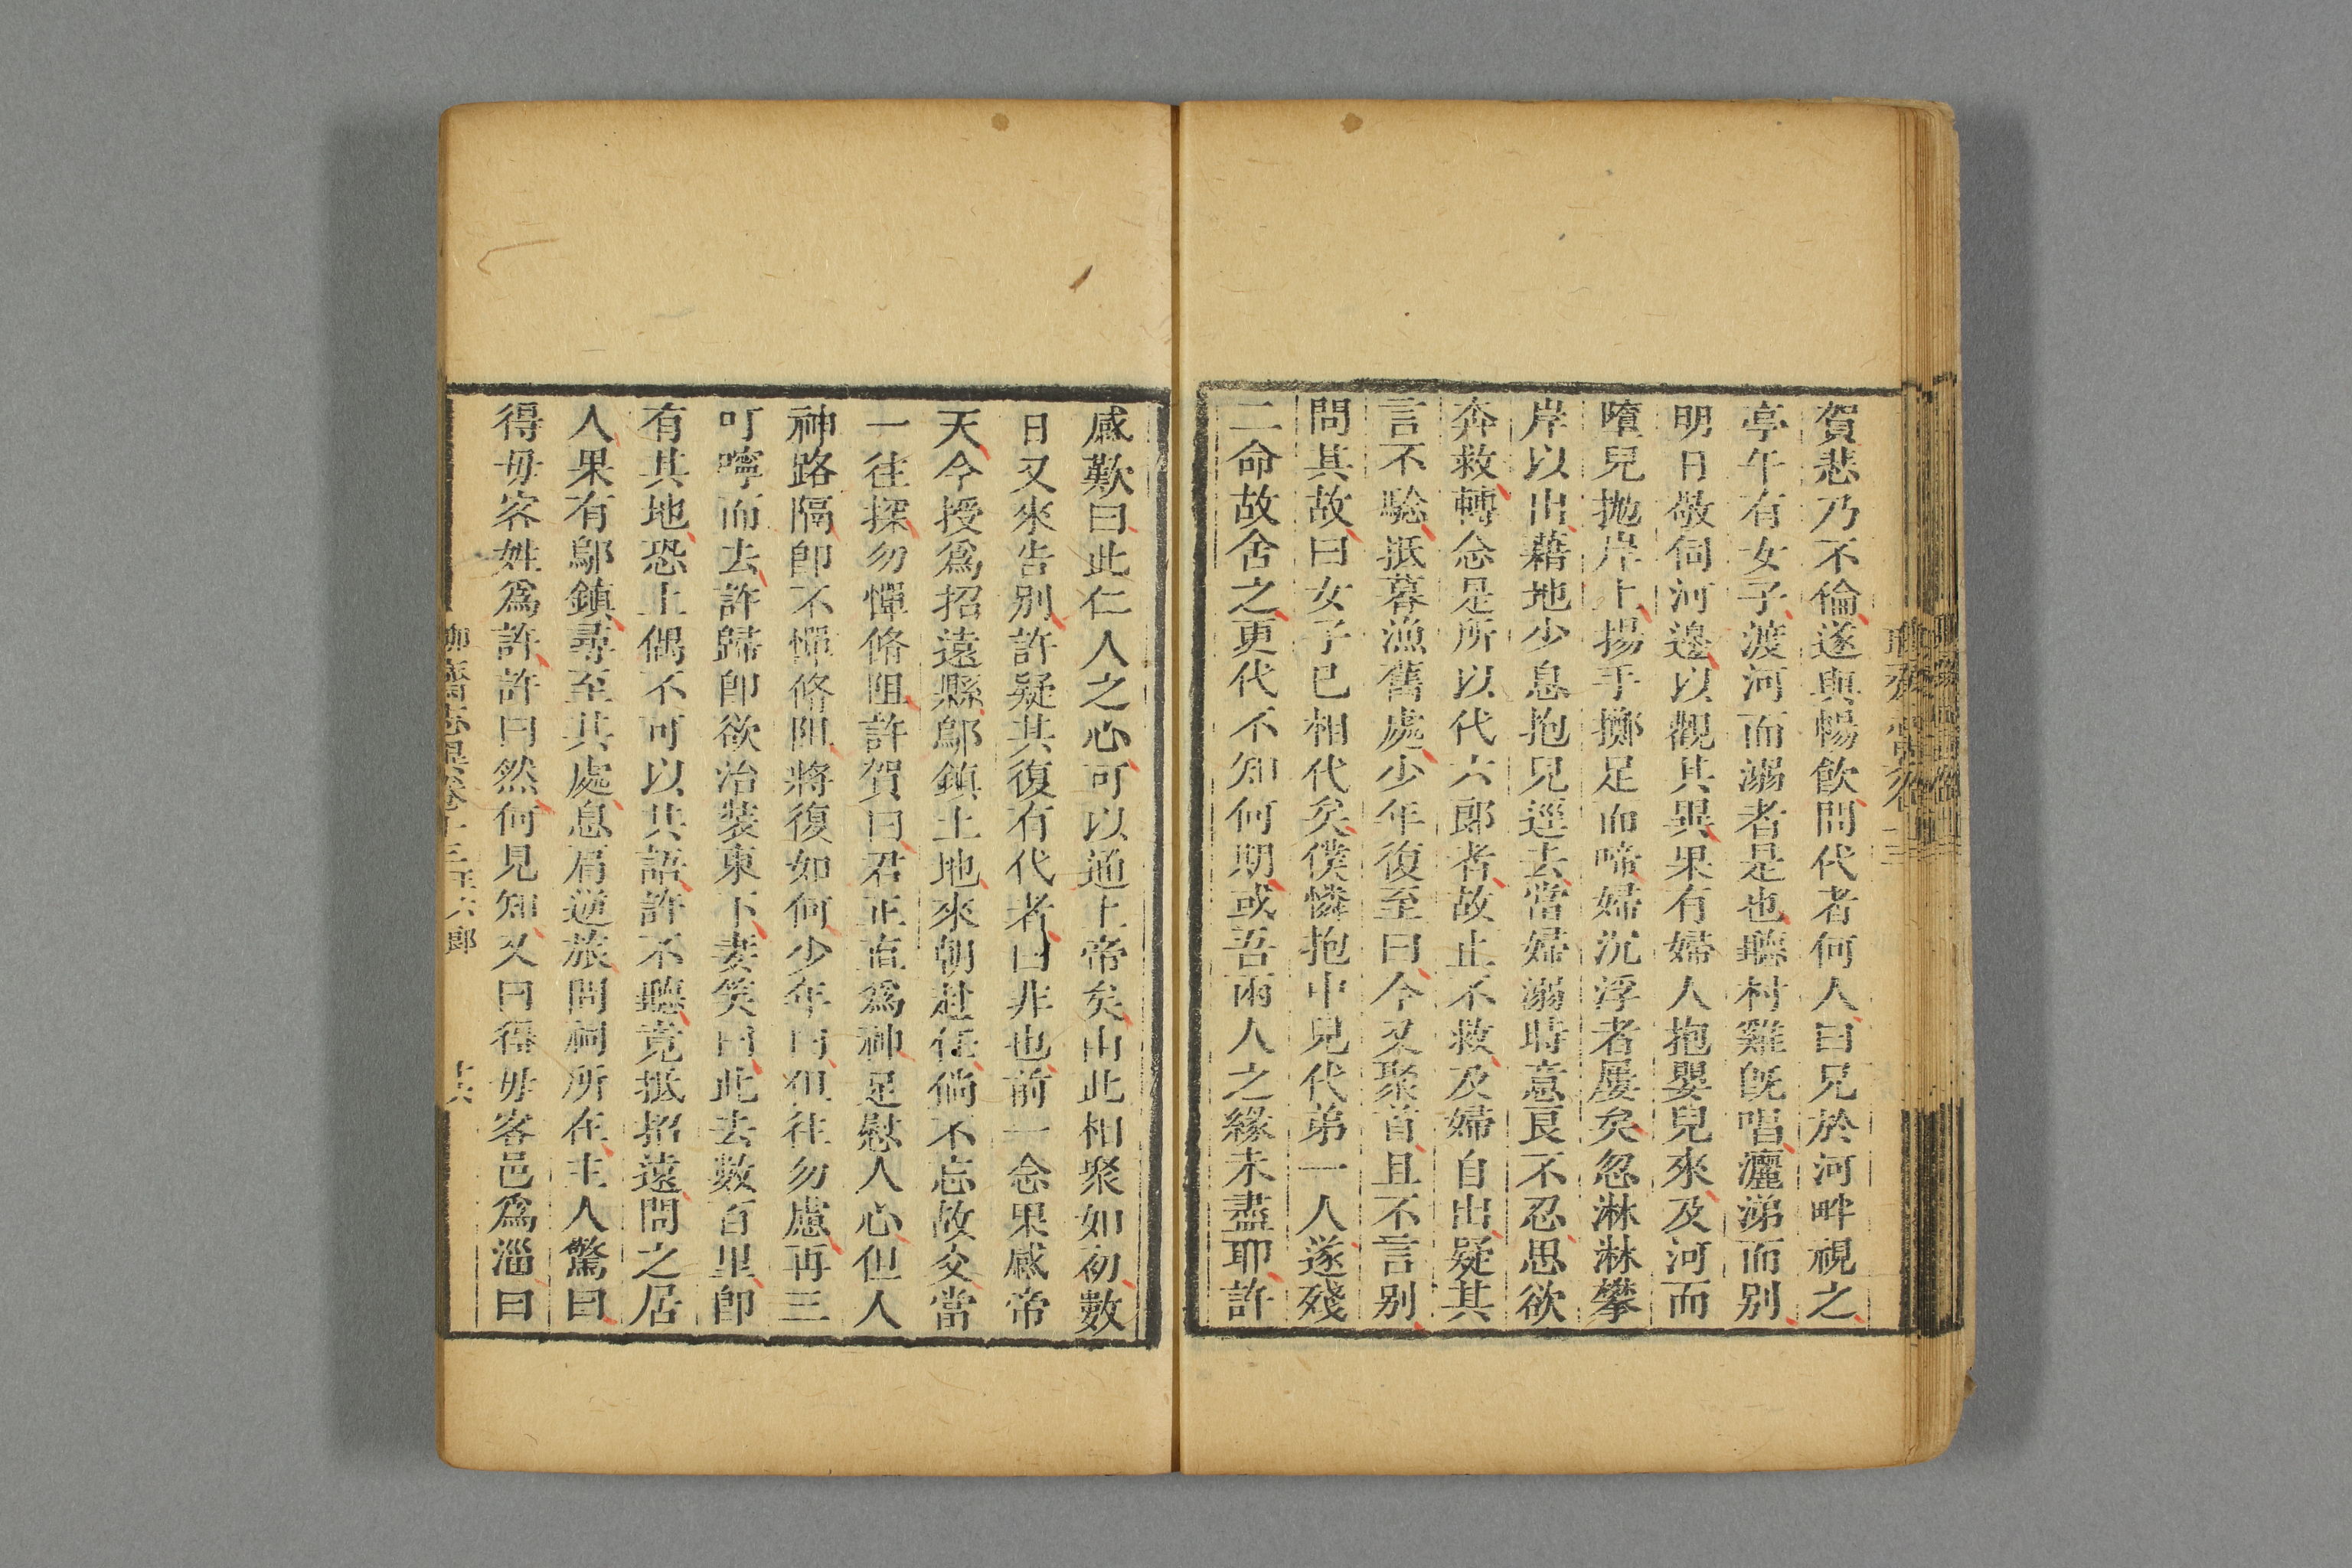 賀悲乃不倫遂與暢飲問代者何人曰兄於河畔視之
亭午有女子渡河而溺者是也聽村雞旣唱灑涕而别
明日敬伺河邊以觀其異果有婦人抱嬰兒來及河而
墮兒抛岸上揚手擲足而啼婦沉浮者屢矣忽淋淋攀
岸以出藉地少息抱兒逕去當婦溺時意良不忍思欲
奔救轉念是所以代六郎者故止不救及婦自出疑其
言不驗抵暮漁舊處少年復至曰今又聚首且不言别
問其故曰女子已相代矣僕憐抱中兒代弟一人遂殘
二命故舍之更代不知何期或吾兩人之緣未盡耶許
感歎曰此仁人之心可以通上帝矣由此相聚如初數
日又來告别許疑其復有代者曰非也前一念果感帝
天今授爲招遠縣鄔鎮土地來朝赴任倘不忘故交當
一往探勿憚脩阻許賀曰君正直爲神足慰人心但人
神路隔卽不憚脩阻將復如何少年曰但往勿慮再三
叮嚀而去許歸卽欲治裝東下妻笑曰此去數百里卽
有其地恐土偶不可以共語許不聽竟抵招遠問之居
人果有鄔鎮尋至其處息肩逆旅問祠所在主人驚曰
得毋客姓爲許許曰然何見知又曰得毋客邑爲淄曰
聊齋志異卷十三王六郎